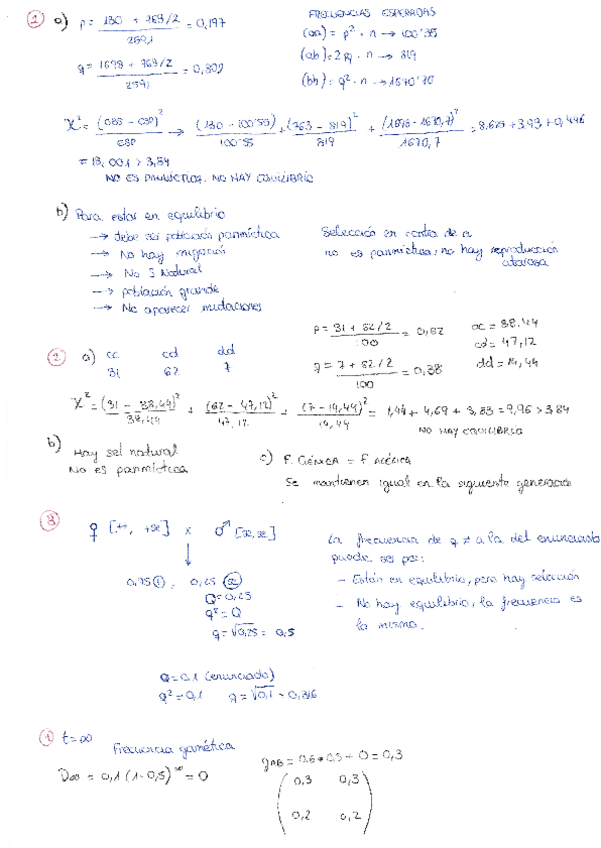 1 a) p = 130 + 763/2 / 2591 = 0,197
q = 1698 + 763/2 / 2591 = 0,802
FRECUENCIAS ESPERADAS
(aa) = p² · n → 100'55
(ab) = 2pq · n → 819
(bb) = q² · n → 1670'70
χ² = (OBS - ESP)² / ESP → (130 - 100'55)² / 100'55 + (763 - 819)² / 819 + (1698 - 1670,7)² / 1670,7 = 8,625 + 3,93 + 0,446
= 13,001 > 3,84
NO ES PANMÍCTICA. NO HAY EQUILIBRIO
b) Para estar en equilibrio
→ debe ser población panmíctica
→ No hay migración
→ No S Natural
→ población grande
→ No aparecer mutaciones
Selección en contra de
no es panmíctica, no hay reproducción
2 a) cc cd dd
31 62 7
p = 31 + 62/2 / 100 = 0,62
q = 7 + 62/2 / 100 = 0,38
cc = 38.44
cd = 47,12
dd = 14,44
χ² = (31 - 38,44)² / 38,44 + (62 - 47,12)² / 47,12 + (7 - 14,44)² / 14,44 = 1,44 + 4,69 + 3,83 = 9,96 > 3,84
NO HAY EQUILIBRIO
b) Hay sel natural
No es panmíctica
c) F. GÉNICA = F. ALÉLICA
Se mantienen igual en la siguiente generación
3 ♀ [++, +se] x ♂ [se,se]
0,75 (+), 0,25 (se)
Q = 0,25
q² = Q
q = √0,25 = 0,5
La frecuencia de q ≠ a la del enunciado
puede ser por:
- Están en equilibrio, pero hay selección
- No hay equilibrio, la frecuencia es
la misma.
Q = 0,1 (enunciado)
q² = 0,1 q = √0,1 = 0,316
t = ∞
Frecuencia gamética
D∞ = 0,1 (1 - 0,5)^∞ = 0
gAB = 0.6 * 0.5 + 0 = 0,3
0,3 0,3
0,2 0,2